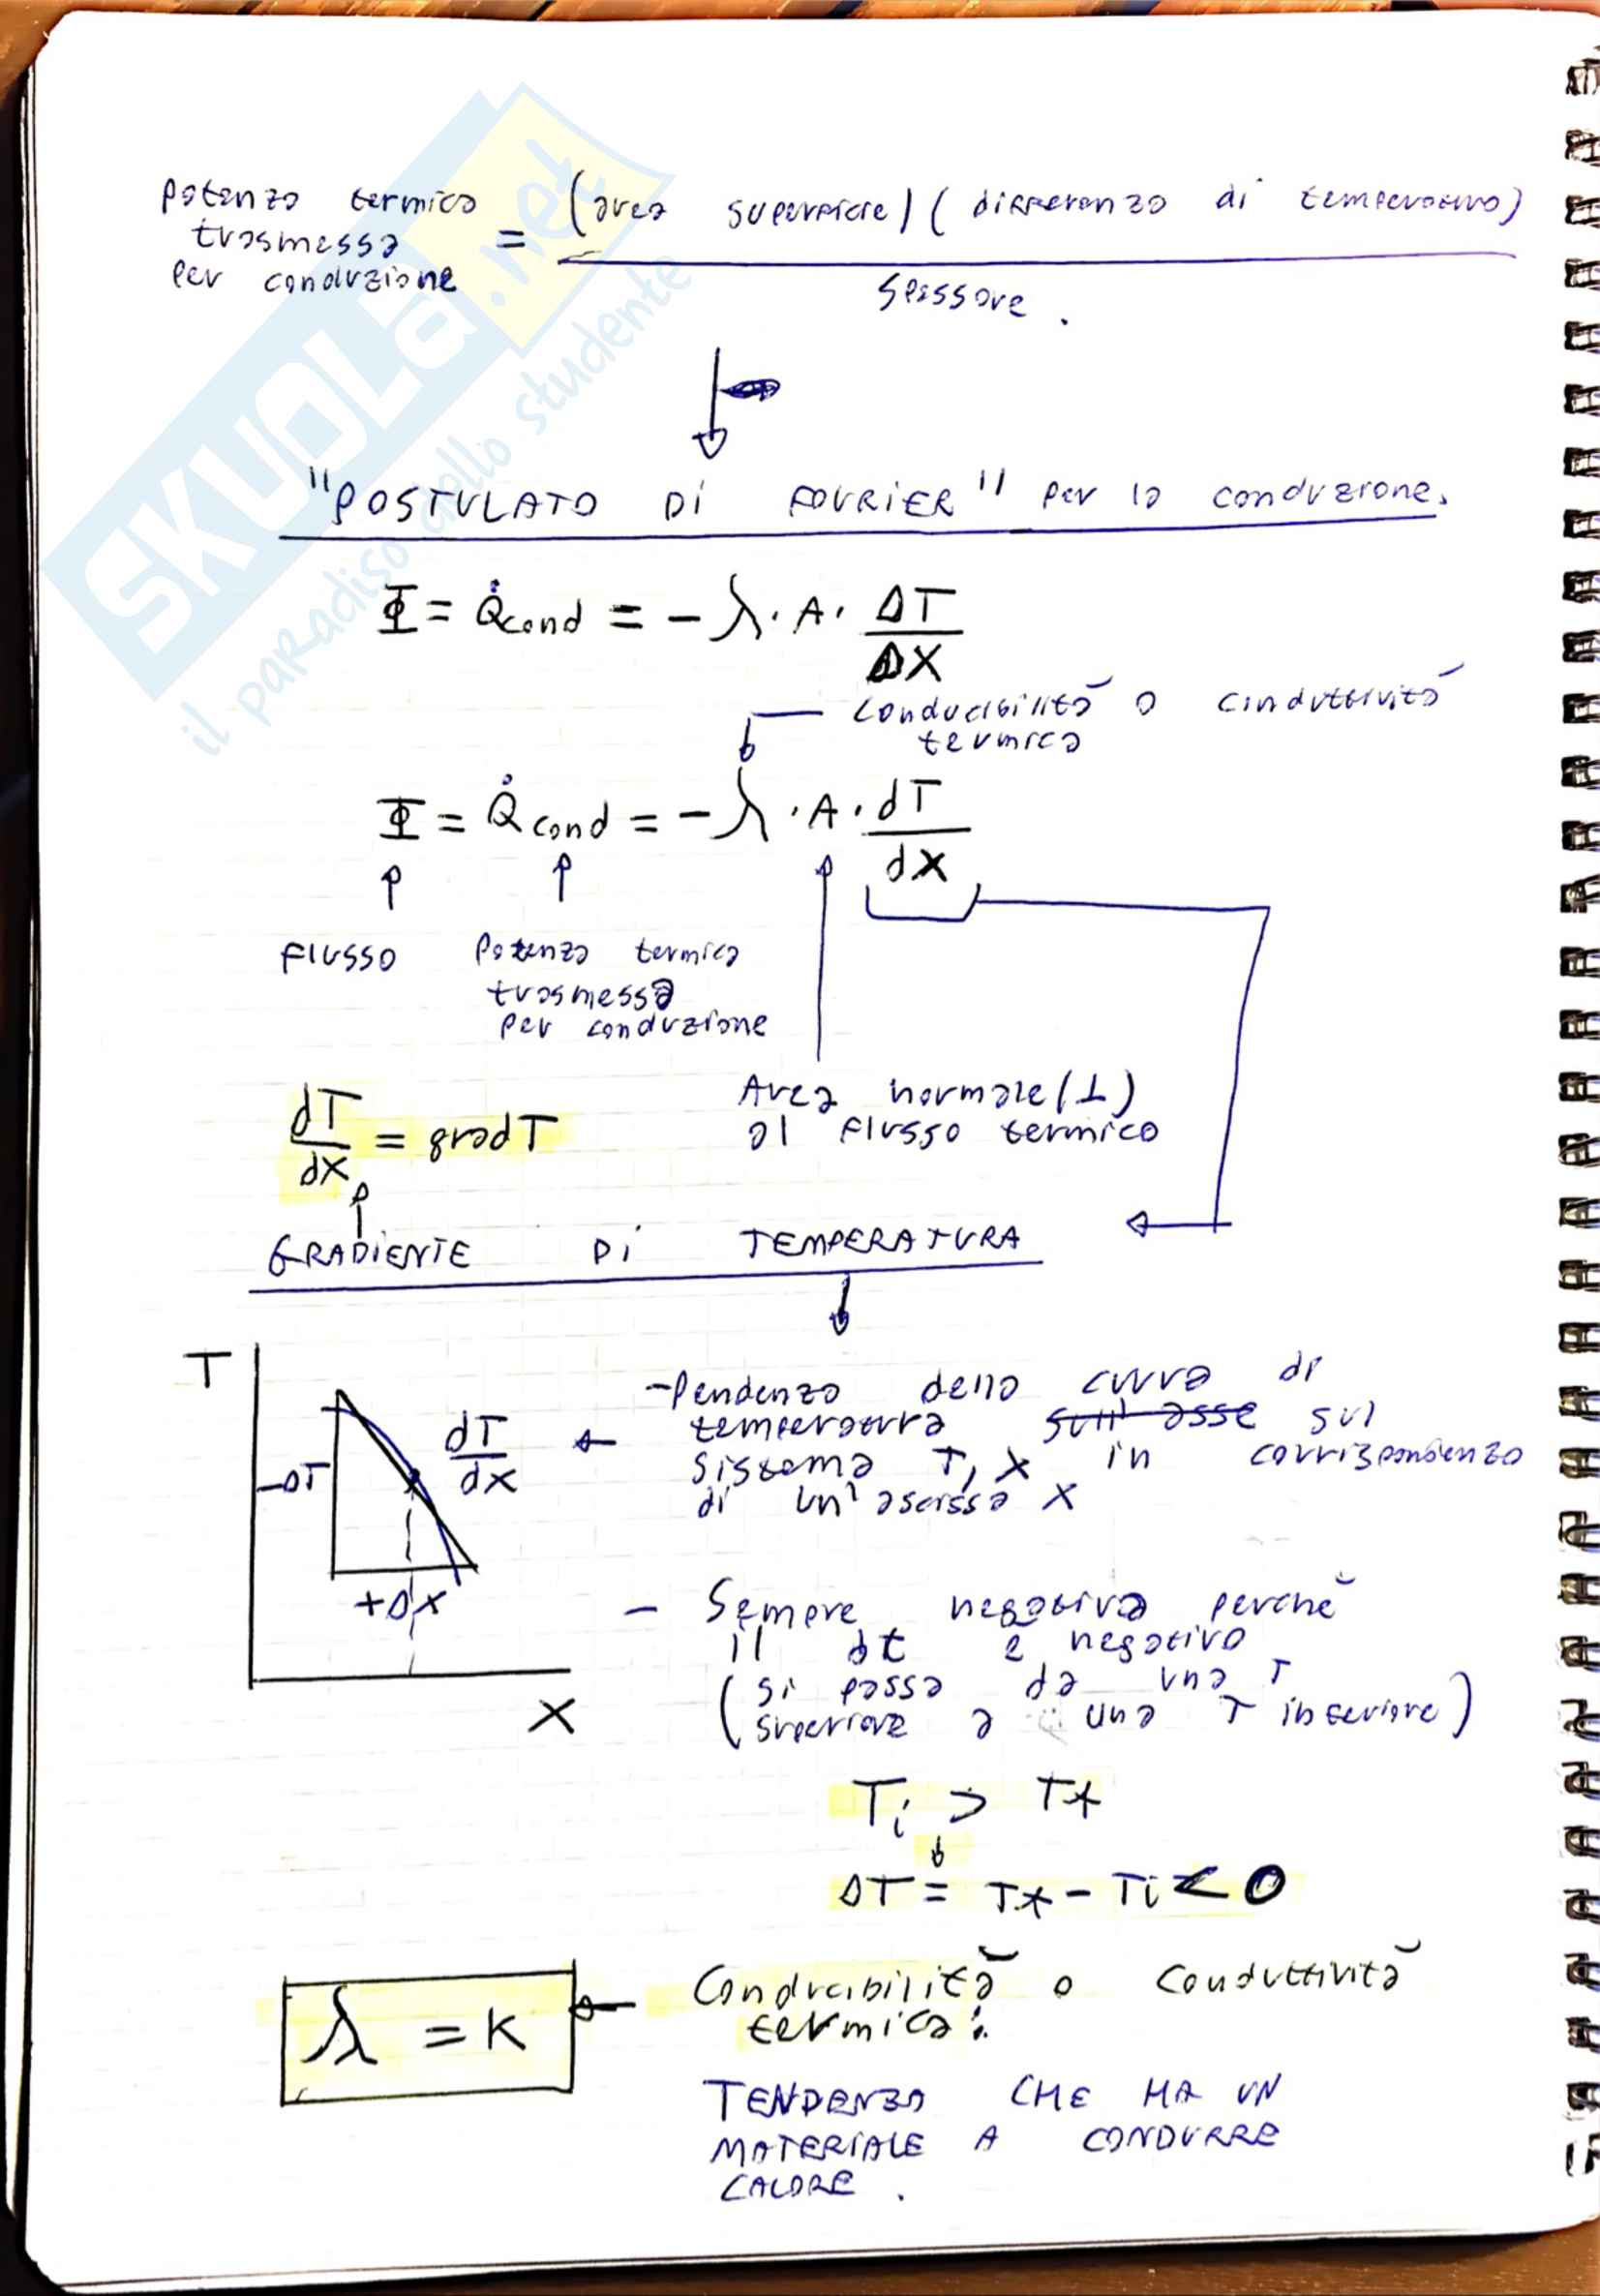 potenza termica = (area superficie) (differenza di temperatura)
trasmessa
per conduzione
spessore.
"POSTULATO Di FOURiER" per la conduzione.
Φ = Q̇cond = - λ · A · ΔT
ΔX
conducibilità o cinduttività
termica
Φ = Q̇cond = - λ · A · dT
dX
flusso
Potenza termica
trasmessa
per conduzione
Area normale (⊥)
al flusso termico
dT
dX = grad T
GRADiENTE Di TEMPERATURA
T
-ΔT
dT
dX
+ΔX
X
- Pendenza della curva di
temperatura sull'asse sul
sistema T, X in corrispondenza
di un'ascissa X
- Sempre negativa perché
il dt è negativo
(si passa da una T
superiore a una T inferiore)
Ti > Tf
ΔT = Tf - Ti < 0
λ = K
Conducibilità o Conduttività
termica:
TENDENZA CHE HA UN
MATERIALE A CONDURRE
CALORE.
SKUOLA.net
il paradiso dello studente